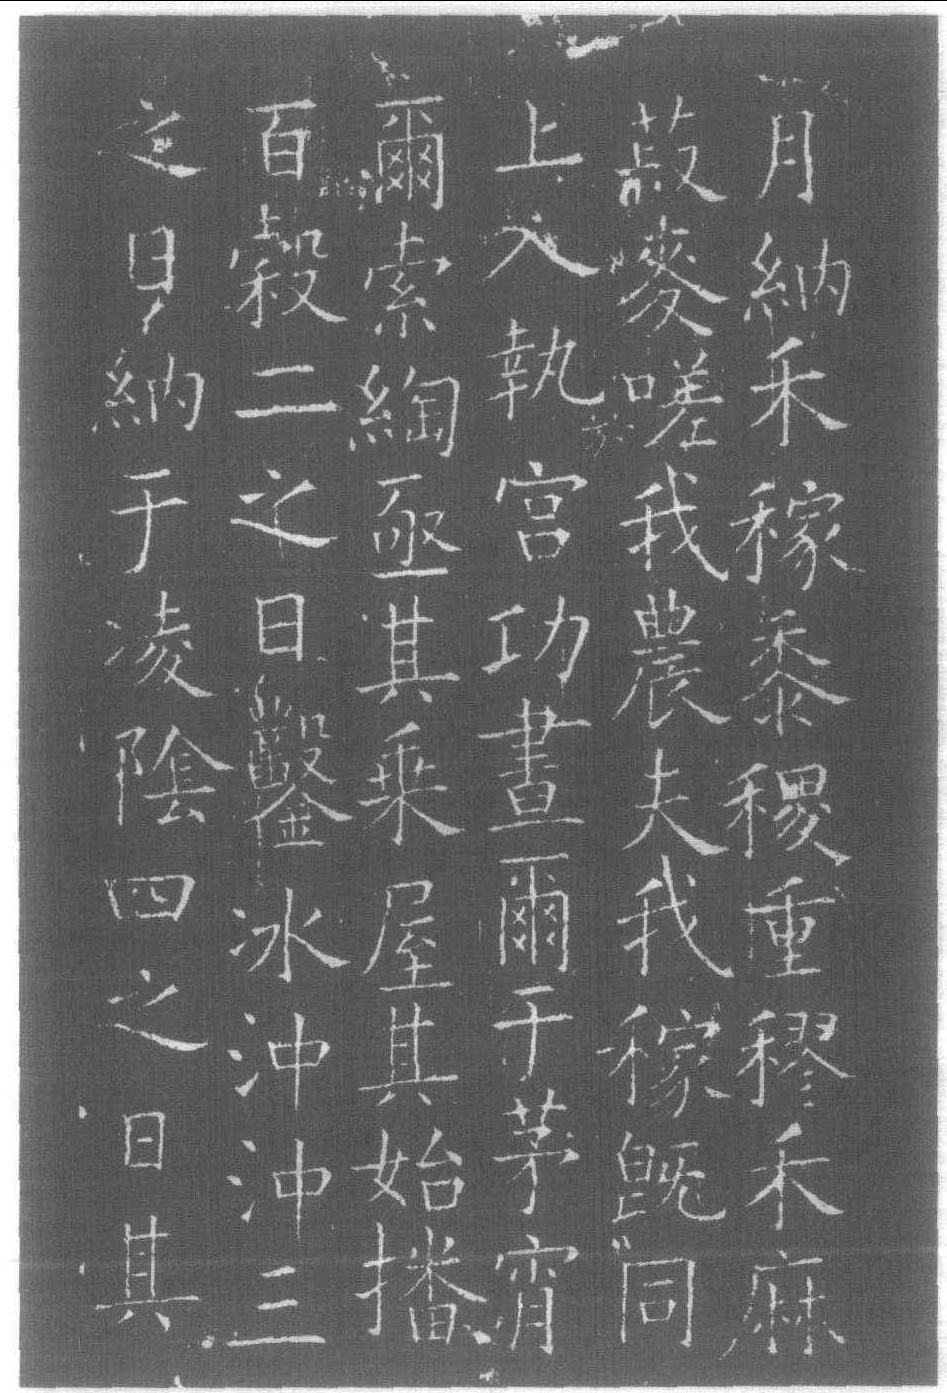 月納禾稼黍稷重穋禾麻
菽麥嗟我農夫我稼既同
上入執宮功晝爾于茅宵
爾索綯亟其乗屋其始播
百穀二之日鑿冰沖沖三
之日納于凌陰四之日其